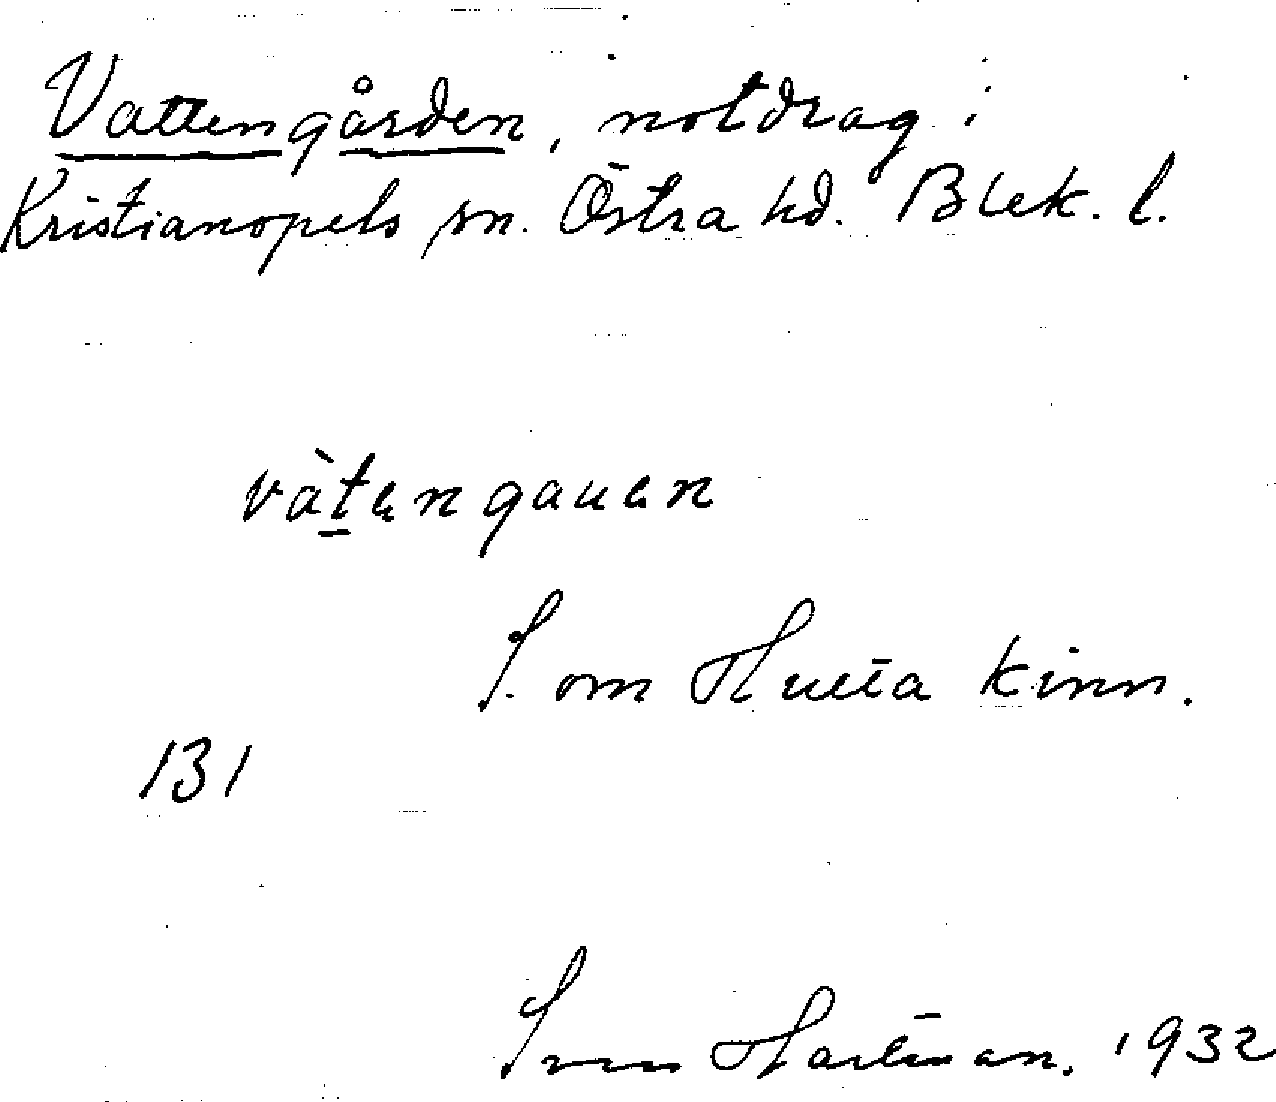 Vattengården, notdrag i
Kristianopels sn. Östra hd. Blek. l.
vàtengauen
S. om Hulta kinn.
131
Sven Hartman. 1932